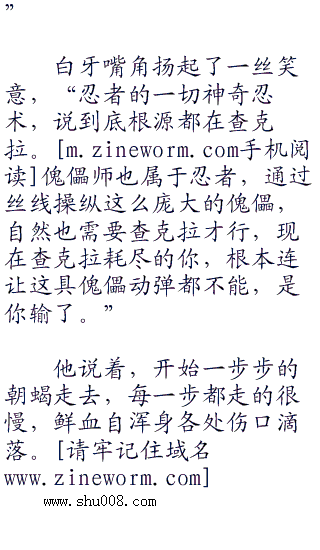 ”
白牙嘴角扬起了一丝笑
意，“忍者的一切神奇忍
术，说到底根源都在查克
拉。[m.zineworm.com手机阅
读]傀儡师也属于忍者，通过
丝线操纵这么庞大的傀儡，
自然也需要查克拉才行，现
在查克拉耗尽的你，根本连
让这具傀儡动弹都不能，是
你输了。”
他说着，开始一步步的
朝蝎走去，每一步都走的很
慢，鲜血自浑身各处伤口滴
落。[请牢记住域名
www.zineworm.com]
www.shu008.com